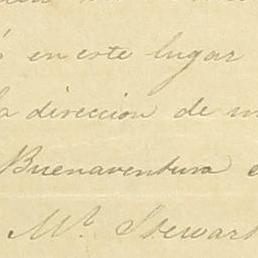 en este lugar
la direccion de
Buenaventura
Mr. Stewart